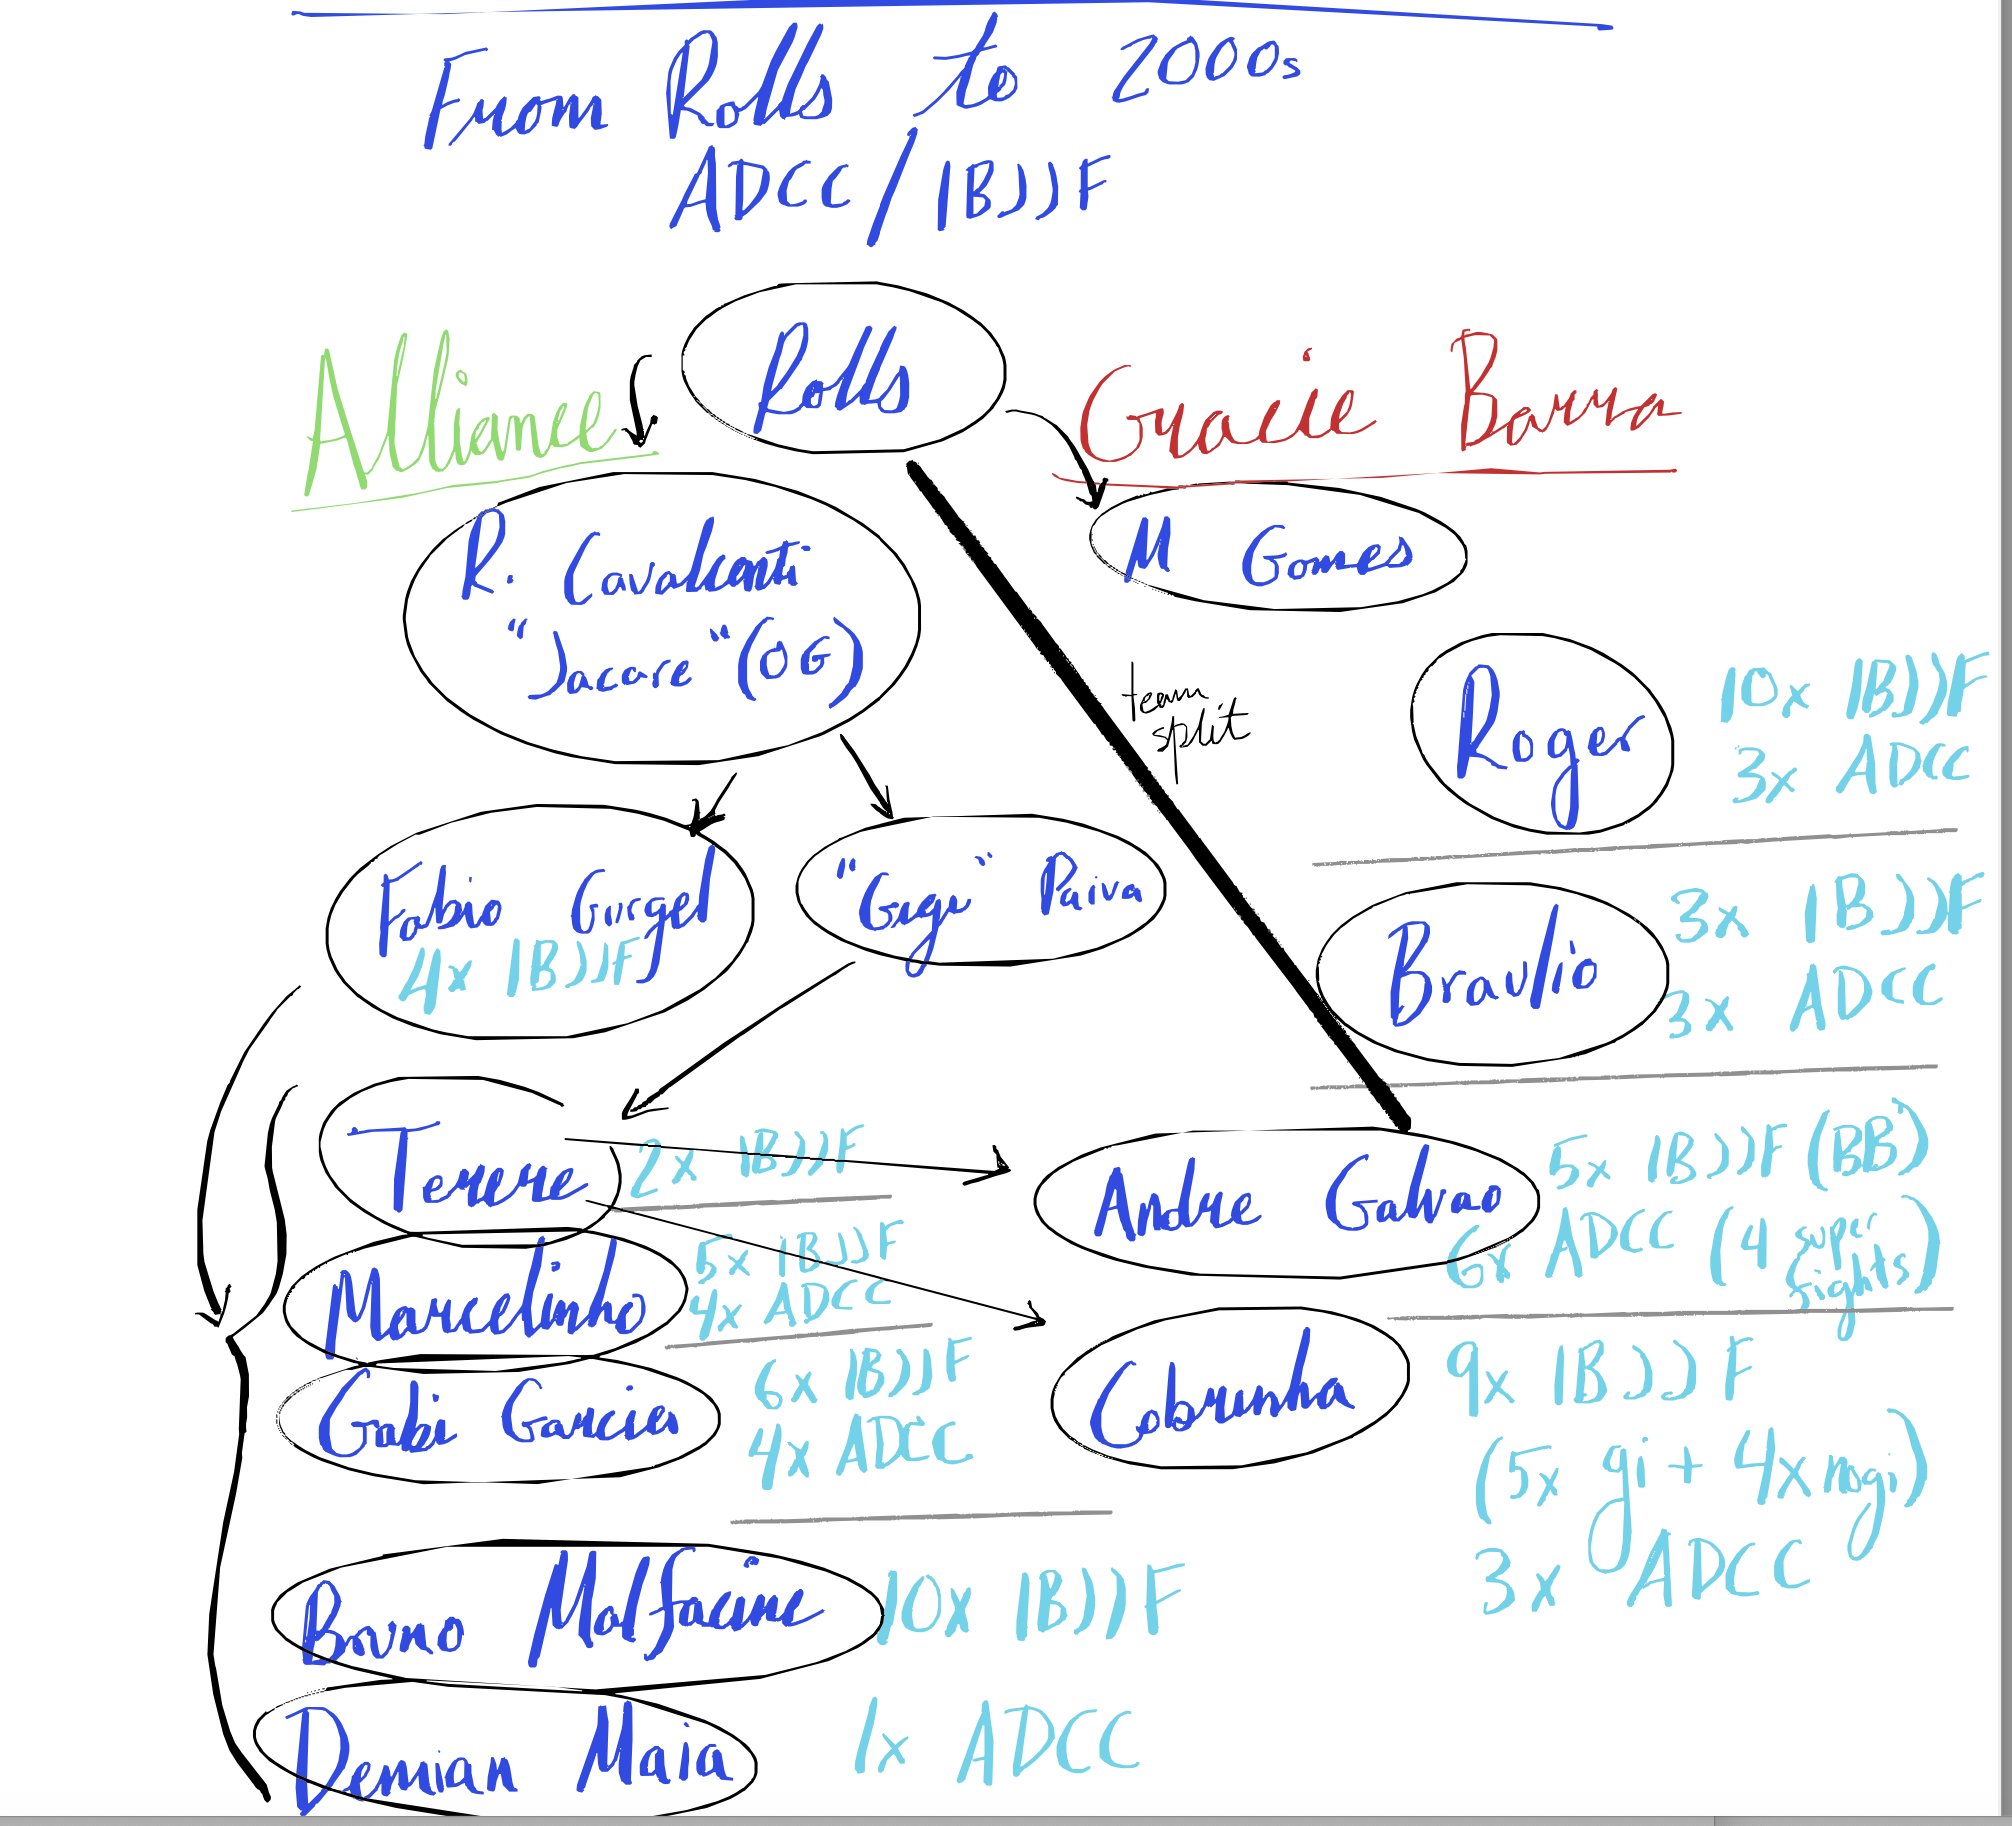 From Rolls to 2000s
ADCC / IBJJF
Rolls
Alliance
Gracie Barra
R. Cavalcanti
"Jacare" (OG)
M Gomes
team
split
Roger
10x IBJJF
3x ADCC
Fabio Gurgel
4x IBJJF
"Gigi" Paiva
Braulio
3x IBJJF
3x ADCC
Terere
2x IBJJF
Andre Galvao
5x IBJJF (BB)
6x ADCC (4 spfc
fights)
Marcelinho
5x IBJJF
4x ADCC
Gabi Garcia
6x IBJJF
4x ADCC
Cobrinha
9x IBJJF
(5x gi + 4x nogi)
3x ADCC
Bruno Malfacine
10x IBJJF
Demian Maia
1x ADCC